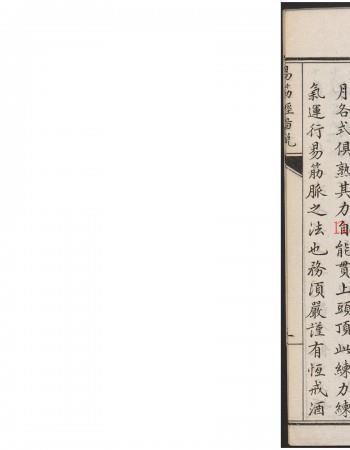 月各式俱熟其力自能貫上頭頂此練力練
氣運行易筋脈之法也務須嚴謹有恆戒酒
易筋經圖說
一